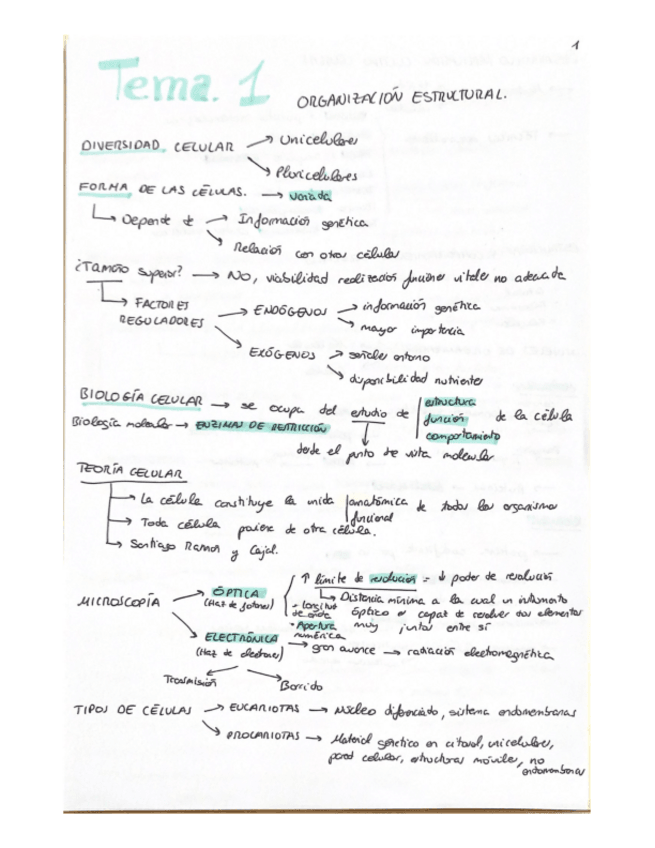 1
Tema. 1 ORGANIZACIÓN ESTRUCTURAL.
DIVERSIDAD CELULAR → Unicelulares
→ Pluricelulares
FORMA DE LAS CÉLULAS. → variada
→ Depende de → Información genética
→ Relación con otras células
¿Tamaño superior? → NO, viabilidad realización funciones vitales no adecuada
→ FACTORES REGULADORES → ENDÓGENOS → información genética
→ mayor importancia
→ EXÓGENOS → señales entorno
→ disponibilidad nutrientes
BIOLOGÍA CELULAR → se ocupa del estudio de | estructura
función de la célula
comportamiento
Biología molecular → ENZIMAS DE RESTRICCIÓN
desde el punto de vista molecular
TEORÍA CELULAR
→ La célula constituye la unida |anatómica de todos los organismos
funcional
→ Toda célula de otra célula.
→ Santiago Ramos y Cajal.
MICROSCOPÍA → ÓPTICA (Haz de fotones) ↑ límite de resolución = ↓ poder de resolución
→ Distancia mínima a la cual un instrumento
- longitud de onda óptico es capaz de resolver dos elementos
- Apertura numérica muy juntos entre sí
→ ELECTRÓNICA (Haz de electrones) → gran avance → radiación electromagnética
Transmisión Barrido
TIPOS DE CÉLULAS → EUCARIOTAS → Núcleo diferenciado, sistema endomembranas
→ PROCARIOTAS → Material genético en citosol, unicelulares,
pared celular, estructuras móviles, no
endomembranas